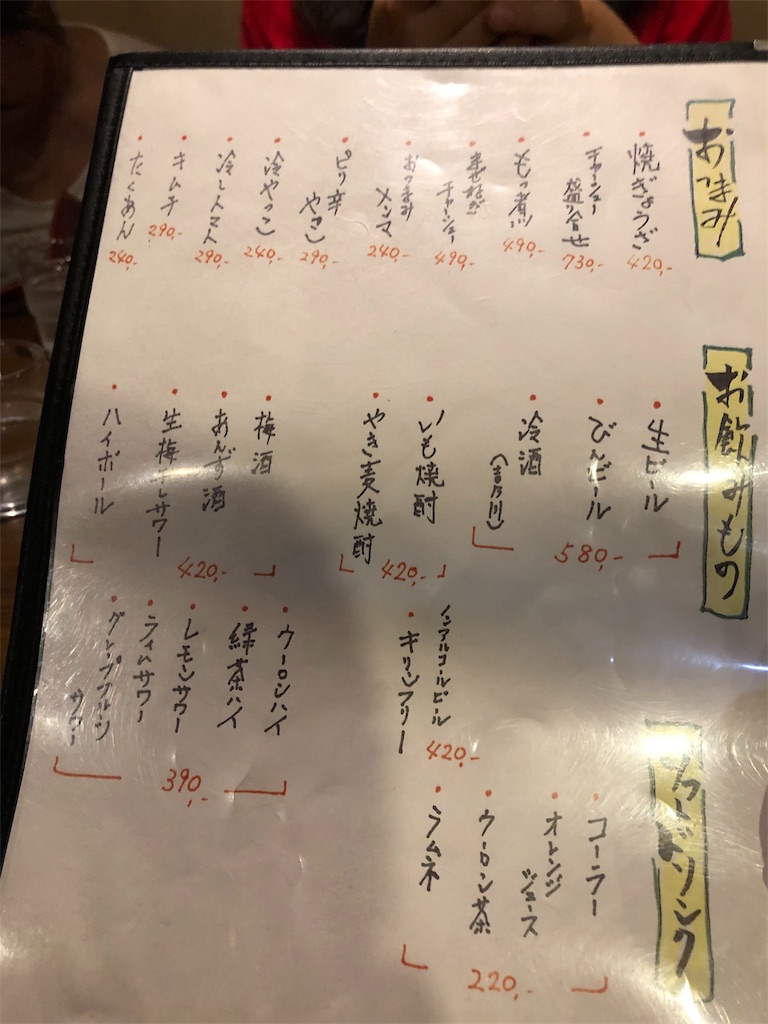 おつまみ
焼ぎょうざ
420.-
チャーシュー
盛り合せ
730.-
もつ煮
490.-
チャーシュー
490.-
おつまみ
メンマ
240.-
ピリ辛
やっこ
290.-
冷やっこ
240.-
冷しトマト
290.-
キムチ
290.-
たくあん
240.-
お飲みもの
生ビール
びんビール
冷酒
(吉乃川)
580.-
いも焼酎
やき麦焼酎
420.-
梅酒
あんず酒
生梅干しサワー
ハイボール
420.-
ノンアルコールビール
キリンフリー
420.-
ウーロンハイ
緑茶ハイ
レモンサワー
ライムサワー
グレープフルーツ
サワー
390.-
ソフトドリンク
コーラー
オレンジ
ジュース
ウーロン茶
ラムネ
220.-